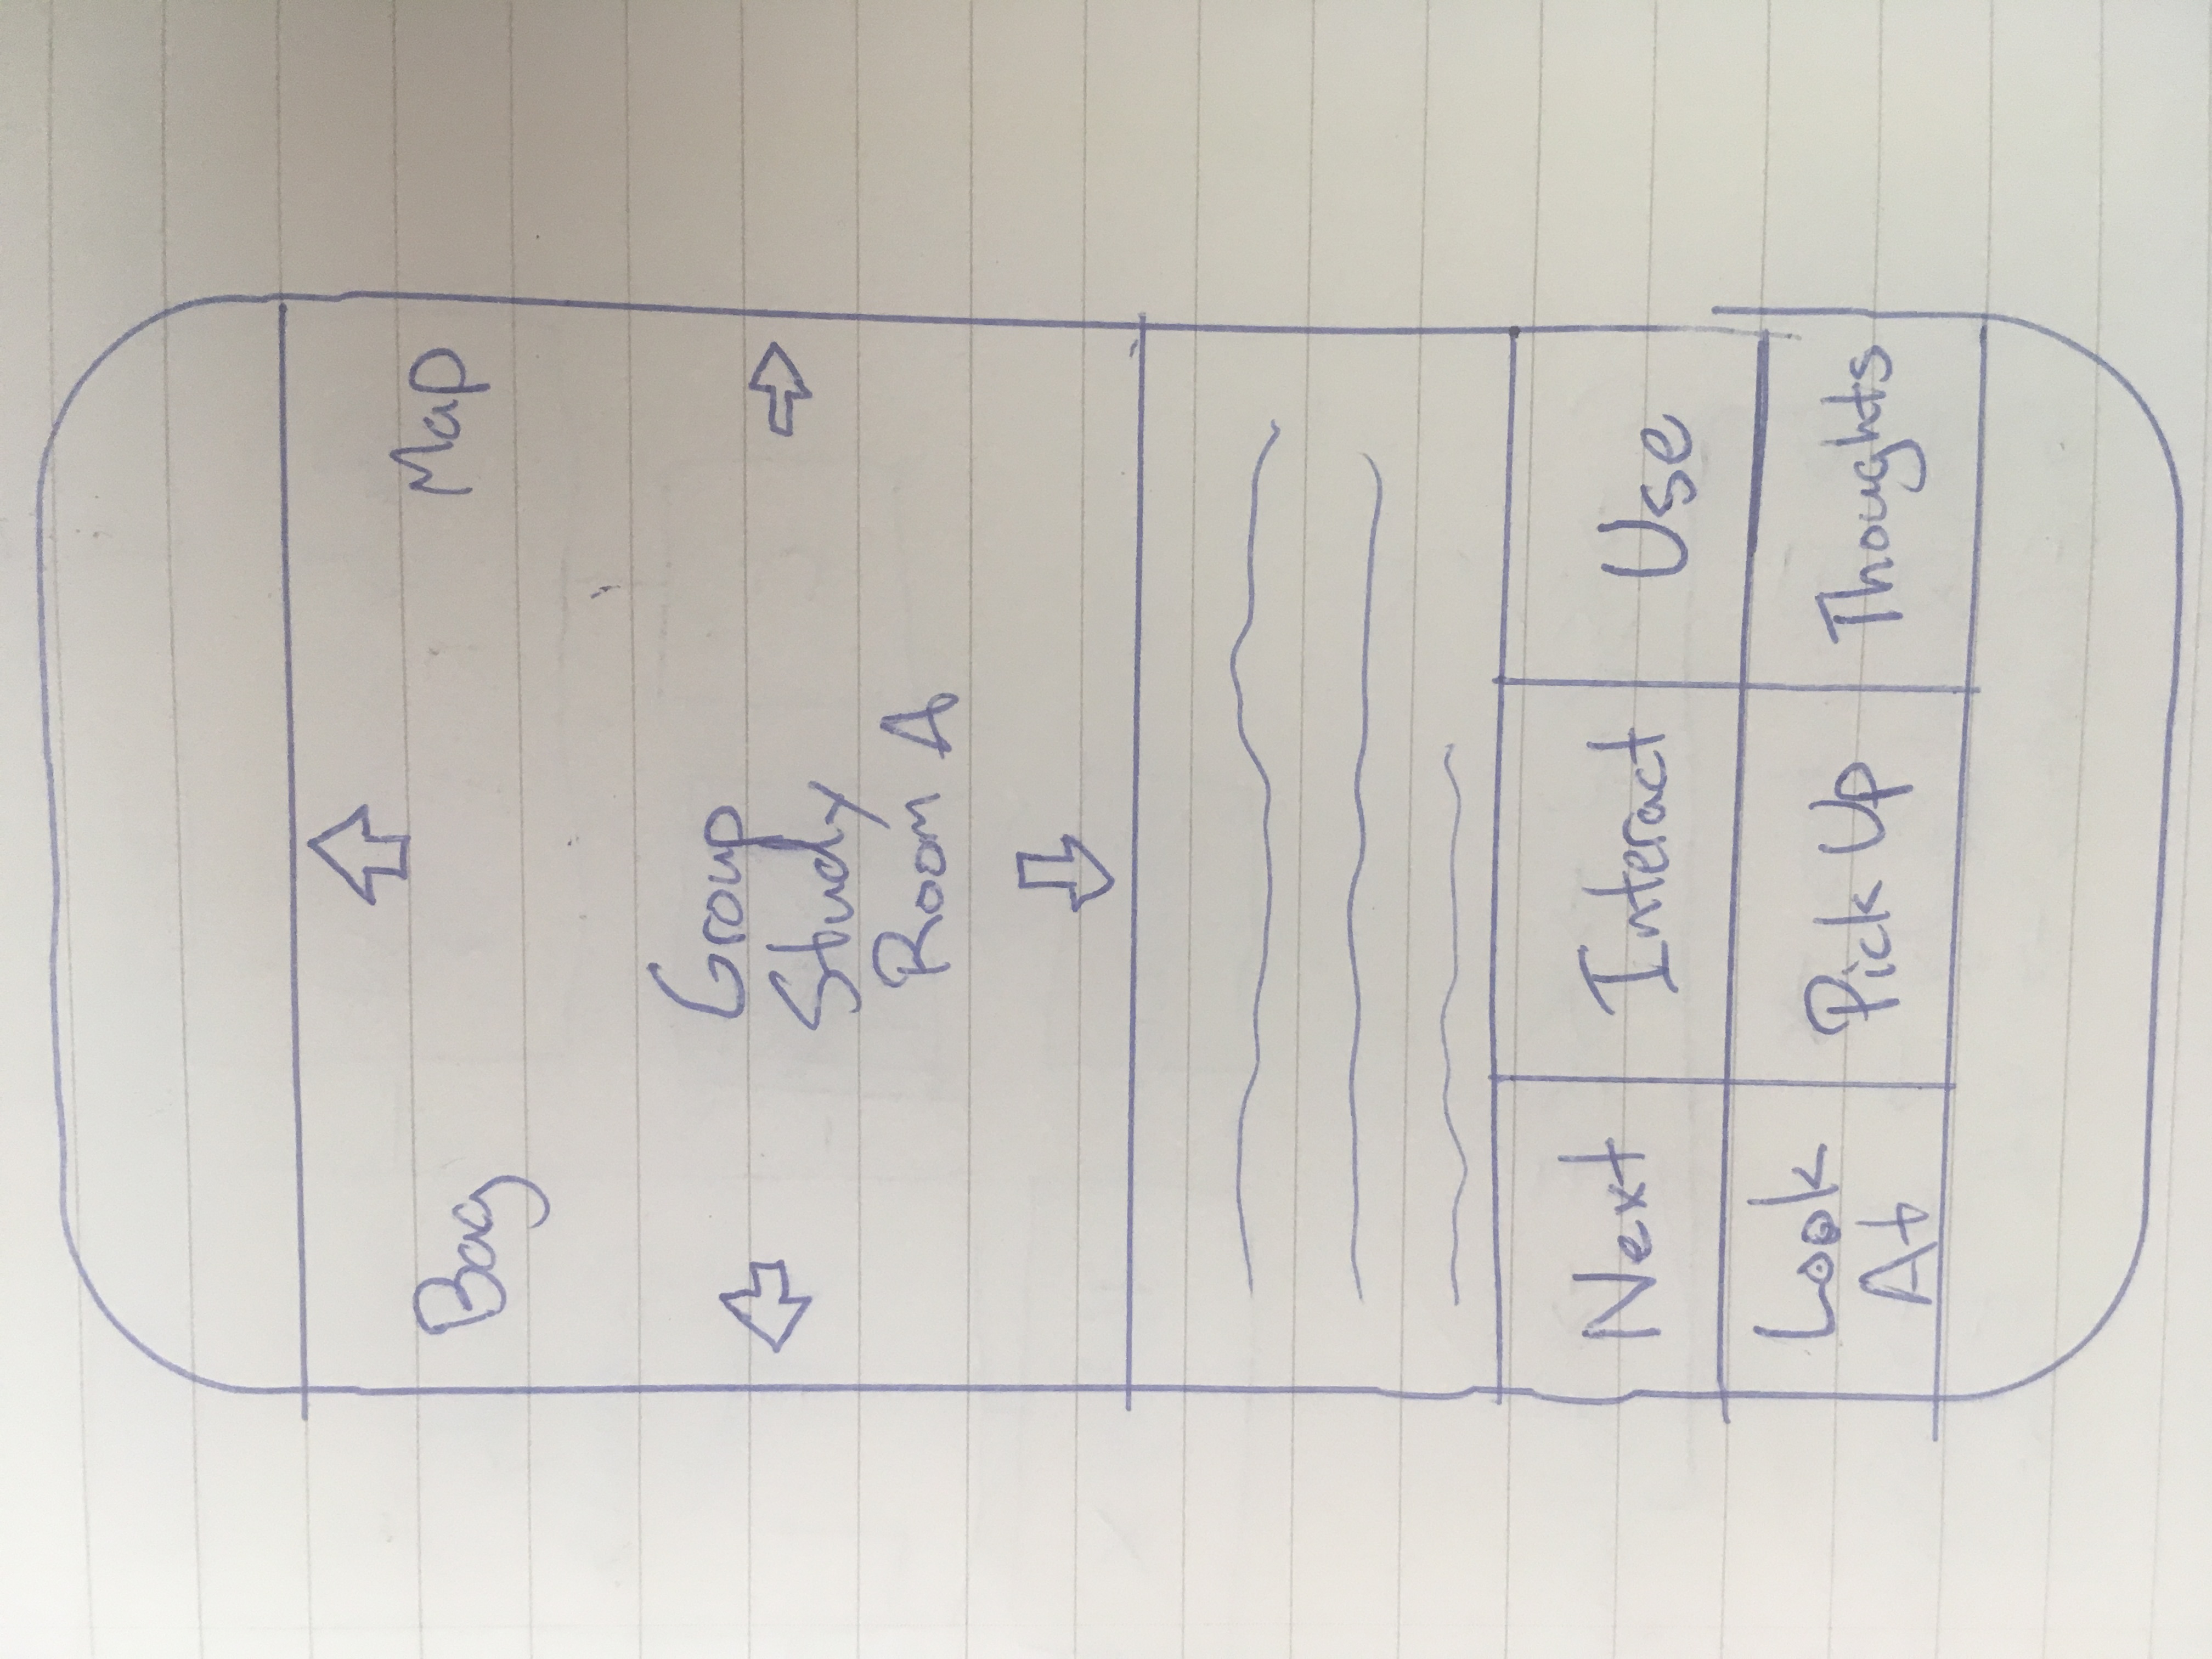 Bag
Map
Group
Study
Room A
Next
Interact
Use
Look
At
Pick Up
Thoughts